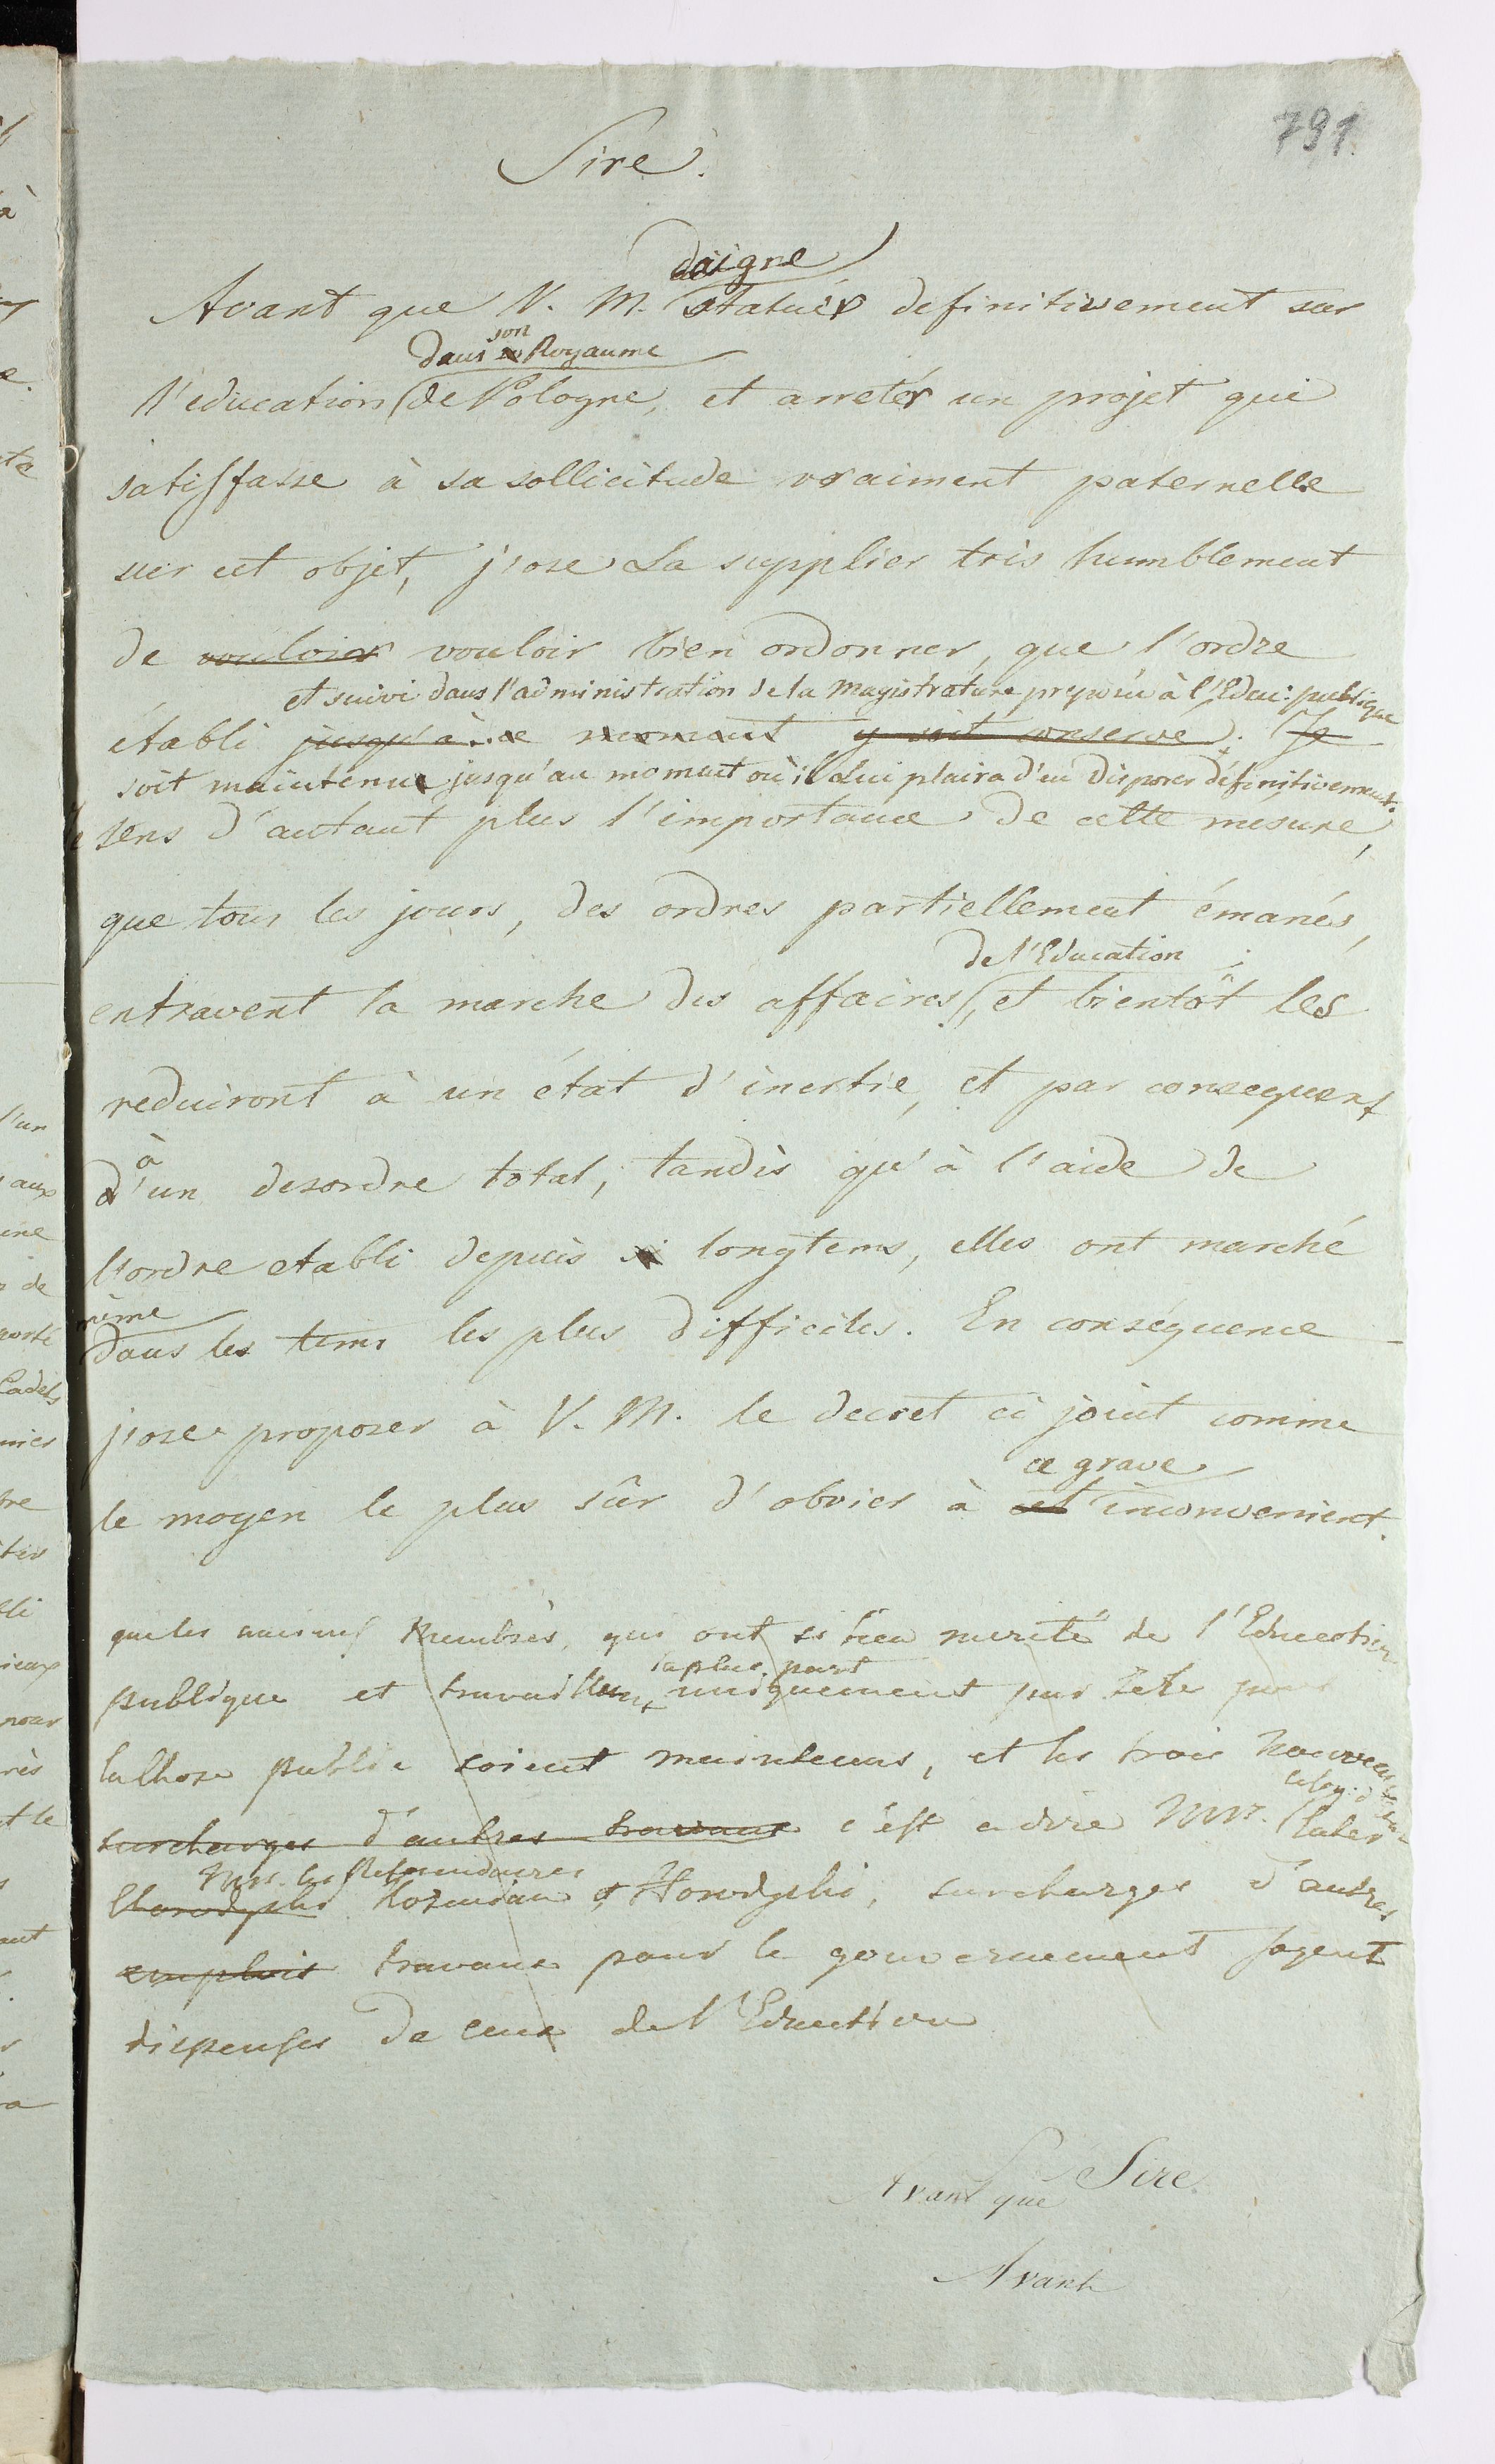 791.
Sire.
daigne
Avant que V. M. statuer definitivement sur
son
dans Royaume
l'education de Pologne, et arretér un projet qui
satisfasse à sa sollicitude vraiment paternelle
sur cet objet, j'ose La supplier tris humblement
de vouloir vouloir bien ordonner, que l'ordre
et suivi dans l'administration de la Magistrature preposée à l'Educ: publique
établi jusqu'à ce moment y soit conservé. Je
soit maintenu jusqu'au moment où il Lui plaira d'en disposer définitivement.
Je sens d'autant plus l'importance de cette mesure,
que tous les jours, des ordres partiellement émanés,
de l'Education
entravent la marche des affaires, et bientôt les
reduiront à un état d'inertie, et par consequent
à
d'un desordre total, tandis qu'à l'aide de
l'ordre etabli depuis si longtems, elles ont marché
même
dans les tems les plus difficiles. En conséquence
j'ose proposer à V. M. le decret ci joint comme
ce grave
le moyen le plus sûr d'obvier à cet inconvenient.
que les anciens Membres, qui ont si bien merité de l'Education
la plus part
publique et travaillent uniquement par zele pour
la chose public soient maintenus, et les trois nouveaux
surcharges d'autres travaux c'est a dire Mrs.
Mrs. les Referendaires
Horodyski Kozmian et Horodyski, surcharges d'autres
emplois travaux pour le gouvernement soyent
dispenses de ceux de l'Education
Sire.
Avant que
Avant